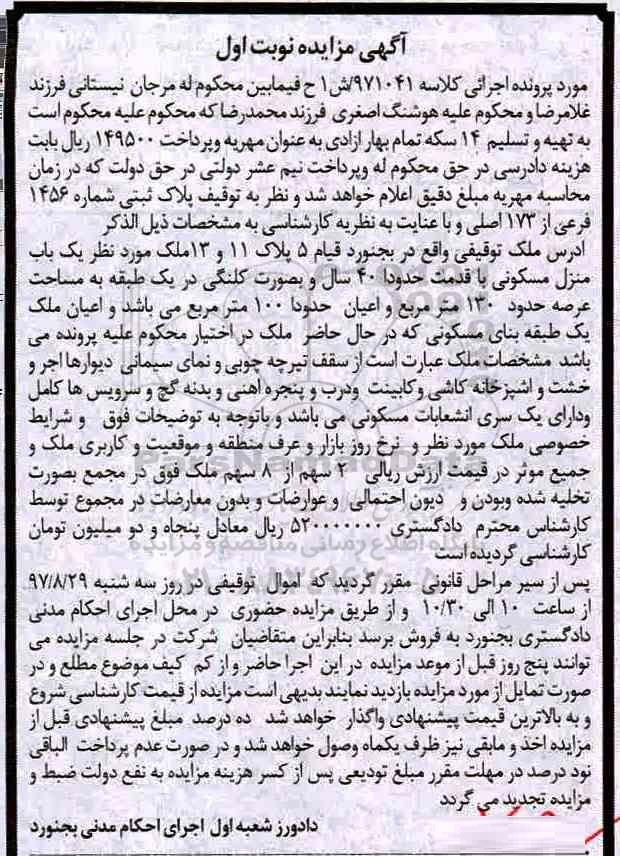 آگهی مزایده نوبت اول
مورد پرونده اجرائی کلاسه ۹۷۱۰۴۱/ش۱ ح فیمابین محکوم له مرجان نیستانی فرزند
غلامرضا و محکوم علیه هوشنگ اصغری فرزند محمدرضا که محکوم علیه محکوم است
به تهیه و تسلیم ۱۴ سکه تمام بهار ازادی به عنوان مهریه وپرداخت ۱۴۹۵۰۰ ریال بابت
هزینه دادرسی در حق محکوم له وپرداخت نیم عشر دولتی در حق دولت که در زمان
محاسبه مهریه مبلغ دقیق اعلام خواهد شد و نظر به توقیف پلاک ثبتی شماره ۱۴۵۶
فرعی از ۱۷۳ اصلی و با عنایت به نظریه کارشناسی به مشخصات ذیل الذکر
ادرس ملک توقیفی واقع در بجنورد قیام ۵ پلاک ۱۱ و ۱۳ملک مورد نظر یک باب
منزل مسکونی با قدمت حدود ۴۰ سال و بصورت کلنگی در یک طبقه به مساحت
عرصه حدود ۱۳۰ متر مربع و اعیان حدودا ۱۰۰ متر مربع می باشد و اعیان ملک
یک طبقه بنای مسکونی که در حال حاضر ملک در اختیار محکوم علیه پرونده می
باشد مشخصات ملک عبارت است از سقف تیرچه چوبی و نمای سیمانی دیوارها اجر و
خشت و اشپزخانه کاشی وکابینت ودرب و پنجره اهنی و بدنه گچ و سرویس ها کامل
ودارای یک سری انشعابات مسکونی می باشد و باتوجه به توضیحات فوق و شرایط
خصوصی ملک مورد نظر و نرخ روز بازار و عرف منطقه و موقعیت و کاربری ملک و
جمیع موثر در قیمت ارزش ریالی ۲ سهم از ۸ سهم ملک فوق در مجمع بصورت
تخلیه شده وبودن و دیون احتمالی و عوارضات و بدون معارضات در مجموع توسط
کارشناس محترم دادگستری ۵۲۰۰۰۰۰۰۰ ریال معادل پنجاه و دو میلیون تومان
کارشناسی گردیده است
پس از سیر مراحل قانونی مقرر گردید که اموال توقیفی در روز سه شنبه ۹۷/۸/۲۹
از ساعت ۱۰ الی ۱۰/۳۰ و از طریق مزایده حضوری در محل اجرای احکام مدنی
دادگستری بجنورد به فروش برسد بنابراین متقاضیان شرکت در جلسه مزایده می
توانند پنج روز قبل از موعد مزایده در این اجرا حاضر و از کم کیف موضوع مطلع و در
صورت تمایل از مورد مزایده بازدید نمایند بدیهی است مزایده از قیمت کارشناسی شروع
و به بالاترین قیمت پیشنهادی واگذار خواهد شد ده درصد مبلغ پیشنهادی قبل از
مزایده اخذ و مابقی نیز ظرف یکماه وصول خواهد شد و در صورت عدم پرداخت الباقی
نود درصد در مهلت مقرر مبلغ تودیعی پس از کسر هزینه مزایده به نفع دولت ضبط و
مزایده تجدید می گردد
دادورز شعبه اول اجرای احکام مدنی بجنورد